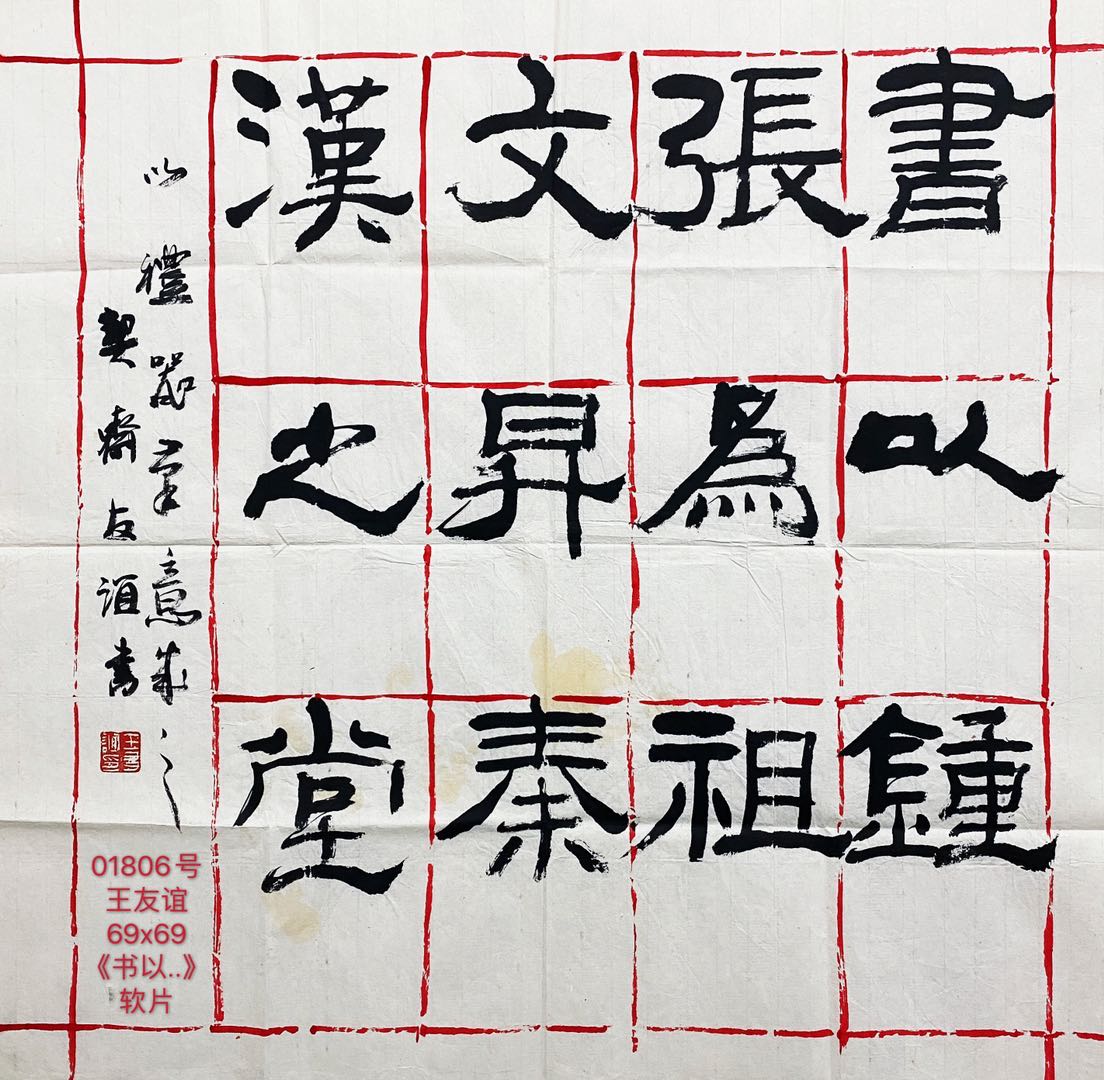 書以鍾
張為祖
文昇秦
漢之堂
以禮器筆意成之
契齋友誼書
王友誼印
01806号
王友谊
69x69
《书以..》
软片